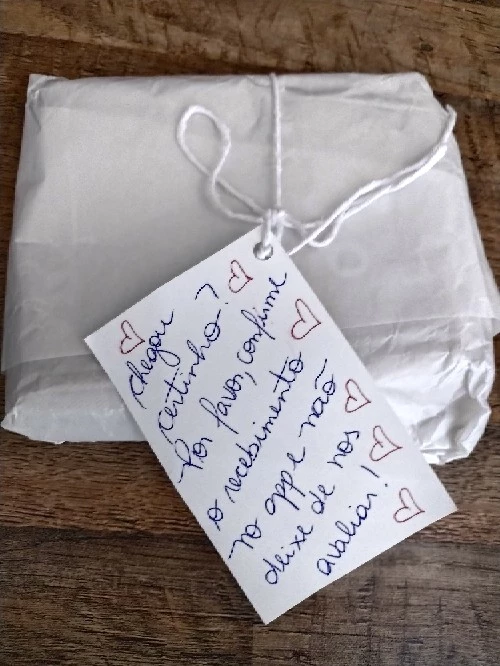 chegou
certinho?
Por favor, confirme
o recebimento
no appe não
deixe de nos
avaliar!